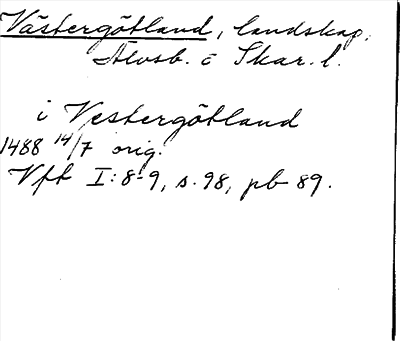 Västergötland, landskap.
Älvsb. o Skar. l.
i Vestergötland
1488 14/7 orig.
Vft I:8-9, s. 98, pb 89.